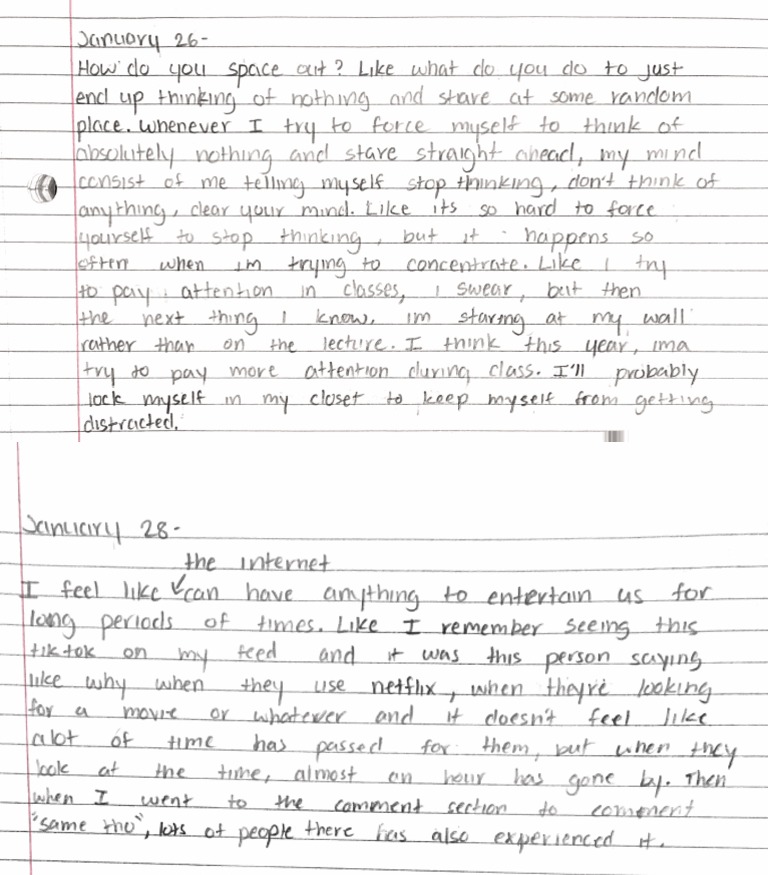 January 26-
How do you space out? Like what do you do to just
end up thinking of nothing and stare at some random
place. Whenever I try to force myself to think of
absolutely nothing and stare straight ahead, my mind
consist of me telling myself stop thinking, don't think of
anything, clear your mind. Like its so hard to force
yourself to stop thinking, but it happens so
often when im trying to concentrate. Like I try
to pay attention in classes, I swear, but then
the next thing I know, im staring at my wall
rather than on the lecture. I think this year, ima
try to pay more attention during class. I'll probably
lock myself in my closet to keep myself from getting
distracted.
January 28-
the internet
I feel like can have anything to entertain us for
long periods of times. Like I remember seeing this
tiktok on my feed and it was this person saying
like why when they use netflix, when they're looking
for a movie or whatever and it doesn't feel like
alot of time has passed for them, but when they
look at the time, almost an hour has gone by. Then
when I went to the comment section to comment
"same tho", lots of people there has also experienced it.